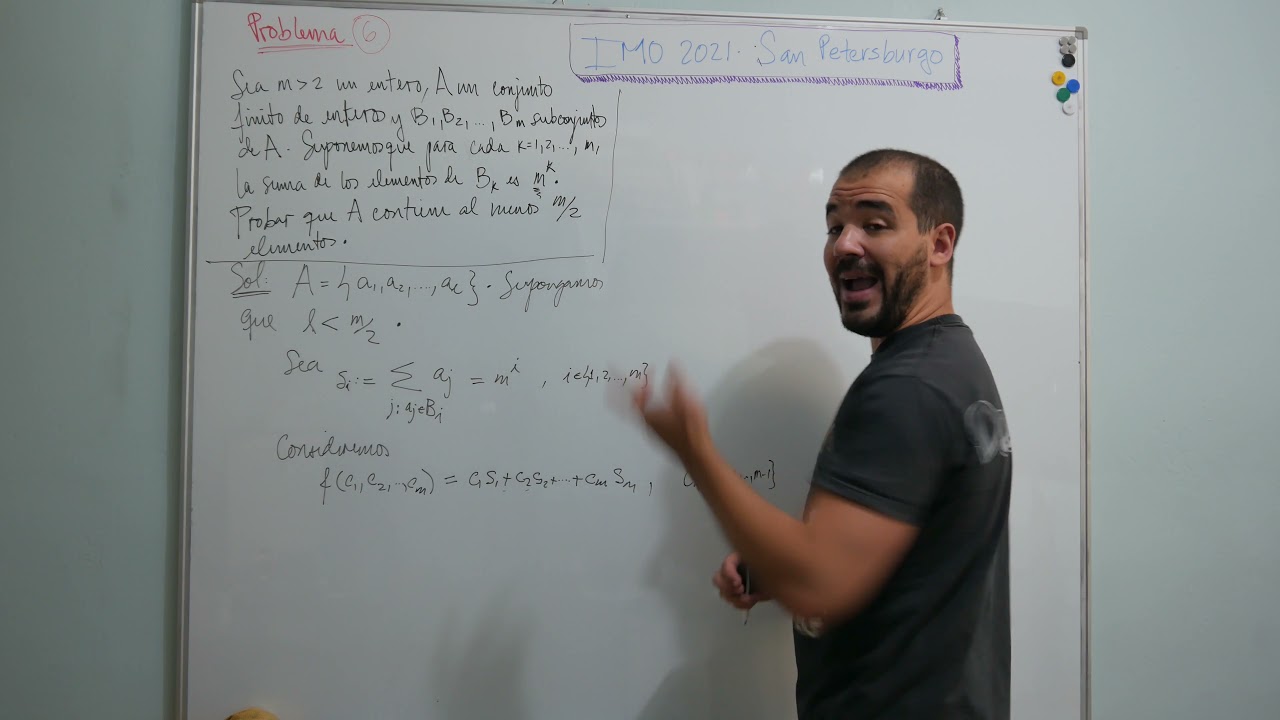 Problema 6
IMO 2021. San Petersburgo
Sea m>2 un entero, A un conjunto
finito de enteros y B₁, B₂, ..., Bm subconjuntos
de A. Suponemos que para cada k=1,2,..., m,
la suma de los elementos de Bₖ es mᵏ.
Probar que A contiene al menos m/2
elementos.
Sol: A = {a₁, a₂, ..., aℓ}. Supongamos
que ℓ < m/2.
Sea Sᵢ := ∑ aⱼ = mⁱ , i∈{1,2,...,m}
j: aⱼ∈Bᵢ
Consideremos
f(c₁, c₂, ..., cm) = c₁S₁+c₂S₂+...+cmSm,
m-1}